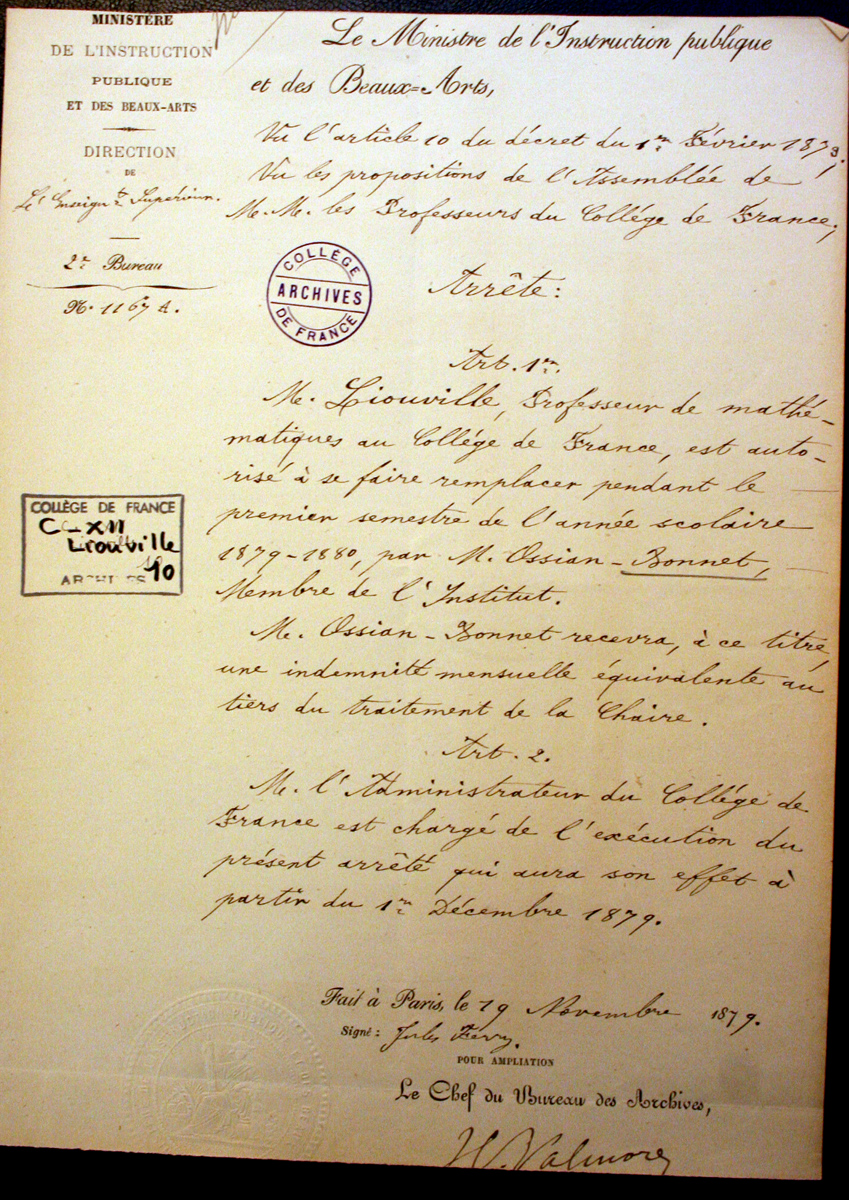 MINISTÈRE
DE L'INSTRUCTION
PUBLIQUE
ET DES BEAUX-ARTS
DIRECTION
DE
L'Enseignt Supérieur.
2e Bureau
No. 1167 A.
Le Ministre de l'Instruction publique
et des Beaux=Arts,
Vu l'article 10 du décret du 1er Février 1873;
Vu les propositions de l'Assemblée de
M.M. les Professeurs du Collége de France;
COLLÈGE
ARCHIVES
DE FRANCE
Arrête:
Art. 1er.
M. Liouville, Professeur de mathé-
matiques au Collége de France, est auto-
risé à se faire remplacer pendant le
premier semestre de l'année scolaire
1879-1880, par M. Ossian-Bonnet,
Membre de l'Institut.
M. Ossian-Bonnet recevra, à ce titre,
une indemnité mensuelle équivalente au
tiers du traitement de la Chaire.
Art. 2.
M. l'Administrateur du Collége de
France est chargé de l'exécution du
présent arrêté qui aura son effet à
partir du 1er Décembre 1879.
COLLÈGE DE FRANCE
C-XII
Liouville
10
ARCHIVES
Fait à Paris, le 19 Novembre 1879.
Signé: Jules Ferry.
POUR AMPLIATION
Le Chef du Bureau des Archives,
Valmore